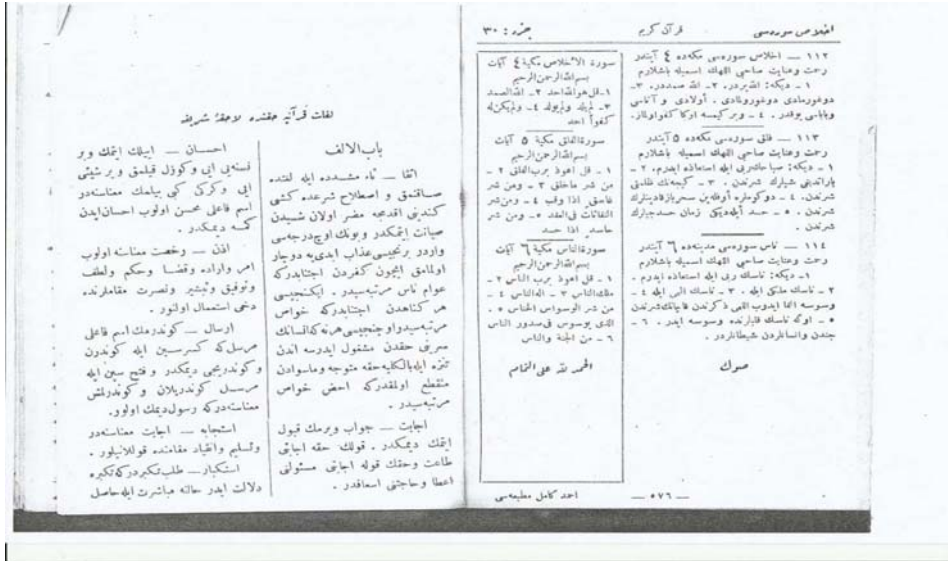 اخلاص سوره‌سی
قرآن کریم
جزء : ٣٠
١١٢ — اخلاص سوره‌سی مکه‌ده ٤ آیتدر
رحمت وعنایت صاحبی اللهك اسمیله باشلارم
١ - دیکه: الله بردر. ٢ - الله صمددر. ٣ -
دوغورمادی دوغورونلادی . أولادی و آناسی
وباباسی یوقدر . ٤ - وبر کیمسه اوکا کفو اولماز.
١١٣ — فلق سوره‌سی مکه‌ده ٥ آیتدر
رحمت وعنایت صاحبی اللهك اسمیله باشلارم
١ - دیکه: صباحك ربی ایله استعاذه ایدرم. ٢ -
یاراتدیغی شیلرك شرندن . ٣ - کیجه‌نك ظلمتی
شرندن. ٤ - دوکوملره أوفله‌ین سحربازقادینلرك
شرندن . ٥ - حسد أیله‌دیکی زمان حسدجیلرك
شرندن .
١١٤ — ناس سوره‌سی مدینه‌ده ٦ آیتدر
رحمت وعنایت صاحبی اللهك اسمیله باشلارم
١ - دیکه: ناسك ربی ایله استعاذه ایدرم .
٢ - ناسك ملکی ایله . ٣ - ناسك الهی ایله ٤ -
وسوسه القا ایدوب اللهی ذکرندن قاچانك شرندن
٥ - اوکه ناسك قلبلرنده وسوسه ایدر . ٦ -
جندن وانسانلردن شیطانلردر .
صوك
— ٥٧٦ —
سورة الأخلاص مكية ٤ آيات
بسم الله الرحمن الرحيم
١ - قل هو الله احد ٢ - الله الصمد
٣ - لم يلد ولم يولد ٤ - ولم يكن له
كفوا احد
سورة الفلق مكية ٥ آيات
بسم الله الرحمن الرحيم
١ - قل اعوذ برب الفلق ٢ -
من شر ماخلق ٣ - ومن شر
غاسق اذا وقب ٤ - ومن شر
النفاثات فى العقد ٥ - ومن شر
حاسد اذا حسد
سورة الناس مكية ٦ آيات
بسم الله الرحمن الرحيم
١ - قل اعوذ برب الناس ٢ -
ملك الناس ٣ - اله الناس ٤ -
من شر الوسواس الخناس ٥ -
الذى يوسوس فى صدور الناس
٦ - من الجنة والناس
الحمد لله على التمام
احمد كامل مطبعه‌سی
لغات قرآنیه حقنده لاحقۀ شریفه
باب الالف
اتقا — تاء مشدده ایله لغتده
صاقنمق و اصطلاح شرعده کشی
کندینی اقدجه مضر اولان شیدن
صیانت ایتمکدر وبونك اوچ درجه‌سی
واردر برنجیسی عذاب ابدی‌یه دوچار
اولمامق ایچون کفردن اجتنابدرکه
عوام ناس مرتبه‌سیدر . ایکنجیسی
هر کناهدن اجتنابدرکه خواص
مرتبه‌سیدر واوچنجیسی هرنه‌که انسانك
سرینی حقدن مشغول ایدرسه اندن
تنزه ایله بالکلیه حقه متوجه وماسوادن
منقطع اولمقدرکه اخص خواص
مرتبه‌سیدر .
اجابت — جواب ویرمك قبول
ایتمك دیمکدر . قولك حقه اجابتی
طاعت وحقك قوله اجابتی مسئولنی
اعطا وحاجتنی اسعافدر .
احسان — اییلك ایتمك وبر
نسنه‌یی ایی وکوزل قیلمق وبر شیئی
ایی وکرك کبی بیلمك معناسنه‌در
اسم فاعلی محسن اولوب احسان ایدن
کسه دیمکدر .
اذن — رخصت معناسنه اولوب
امر واراده وقضا وحکم ولطف
وتوفیق وتیسیر ونصرت مقاملرنده
دخی استعمال اولنور .
ارسال — کوندرمك اسم فاعلی
مرسل‌که کسر سین ایله کوندرن
وکوندریجی دیمکدر وفتح سین ایله
مرسل کوندریلان وکوندرلمش
معناسنه‌درکه رسول دیمك اولور.
استجابه — اجابت معناسنه‌در
وتسلیم وانقیاد مقامنده قوللانیلور .
استکبار — طلب تکبردرکه تکبره
دلالت ایدر حالته مباشرت ایله حاصل